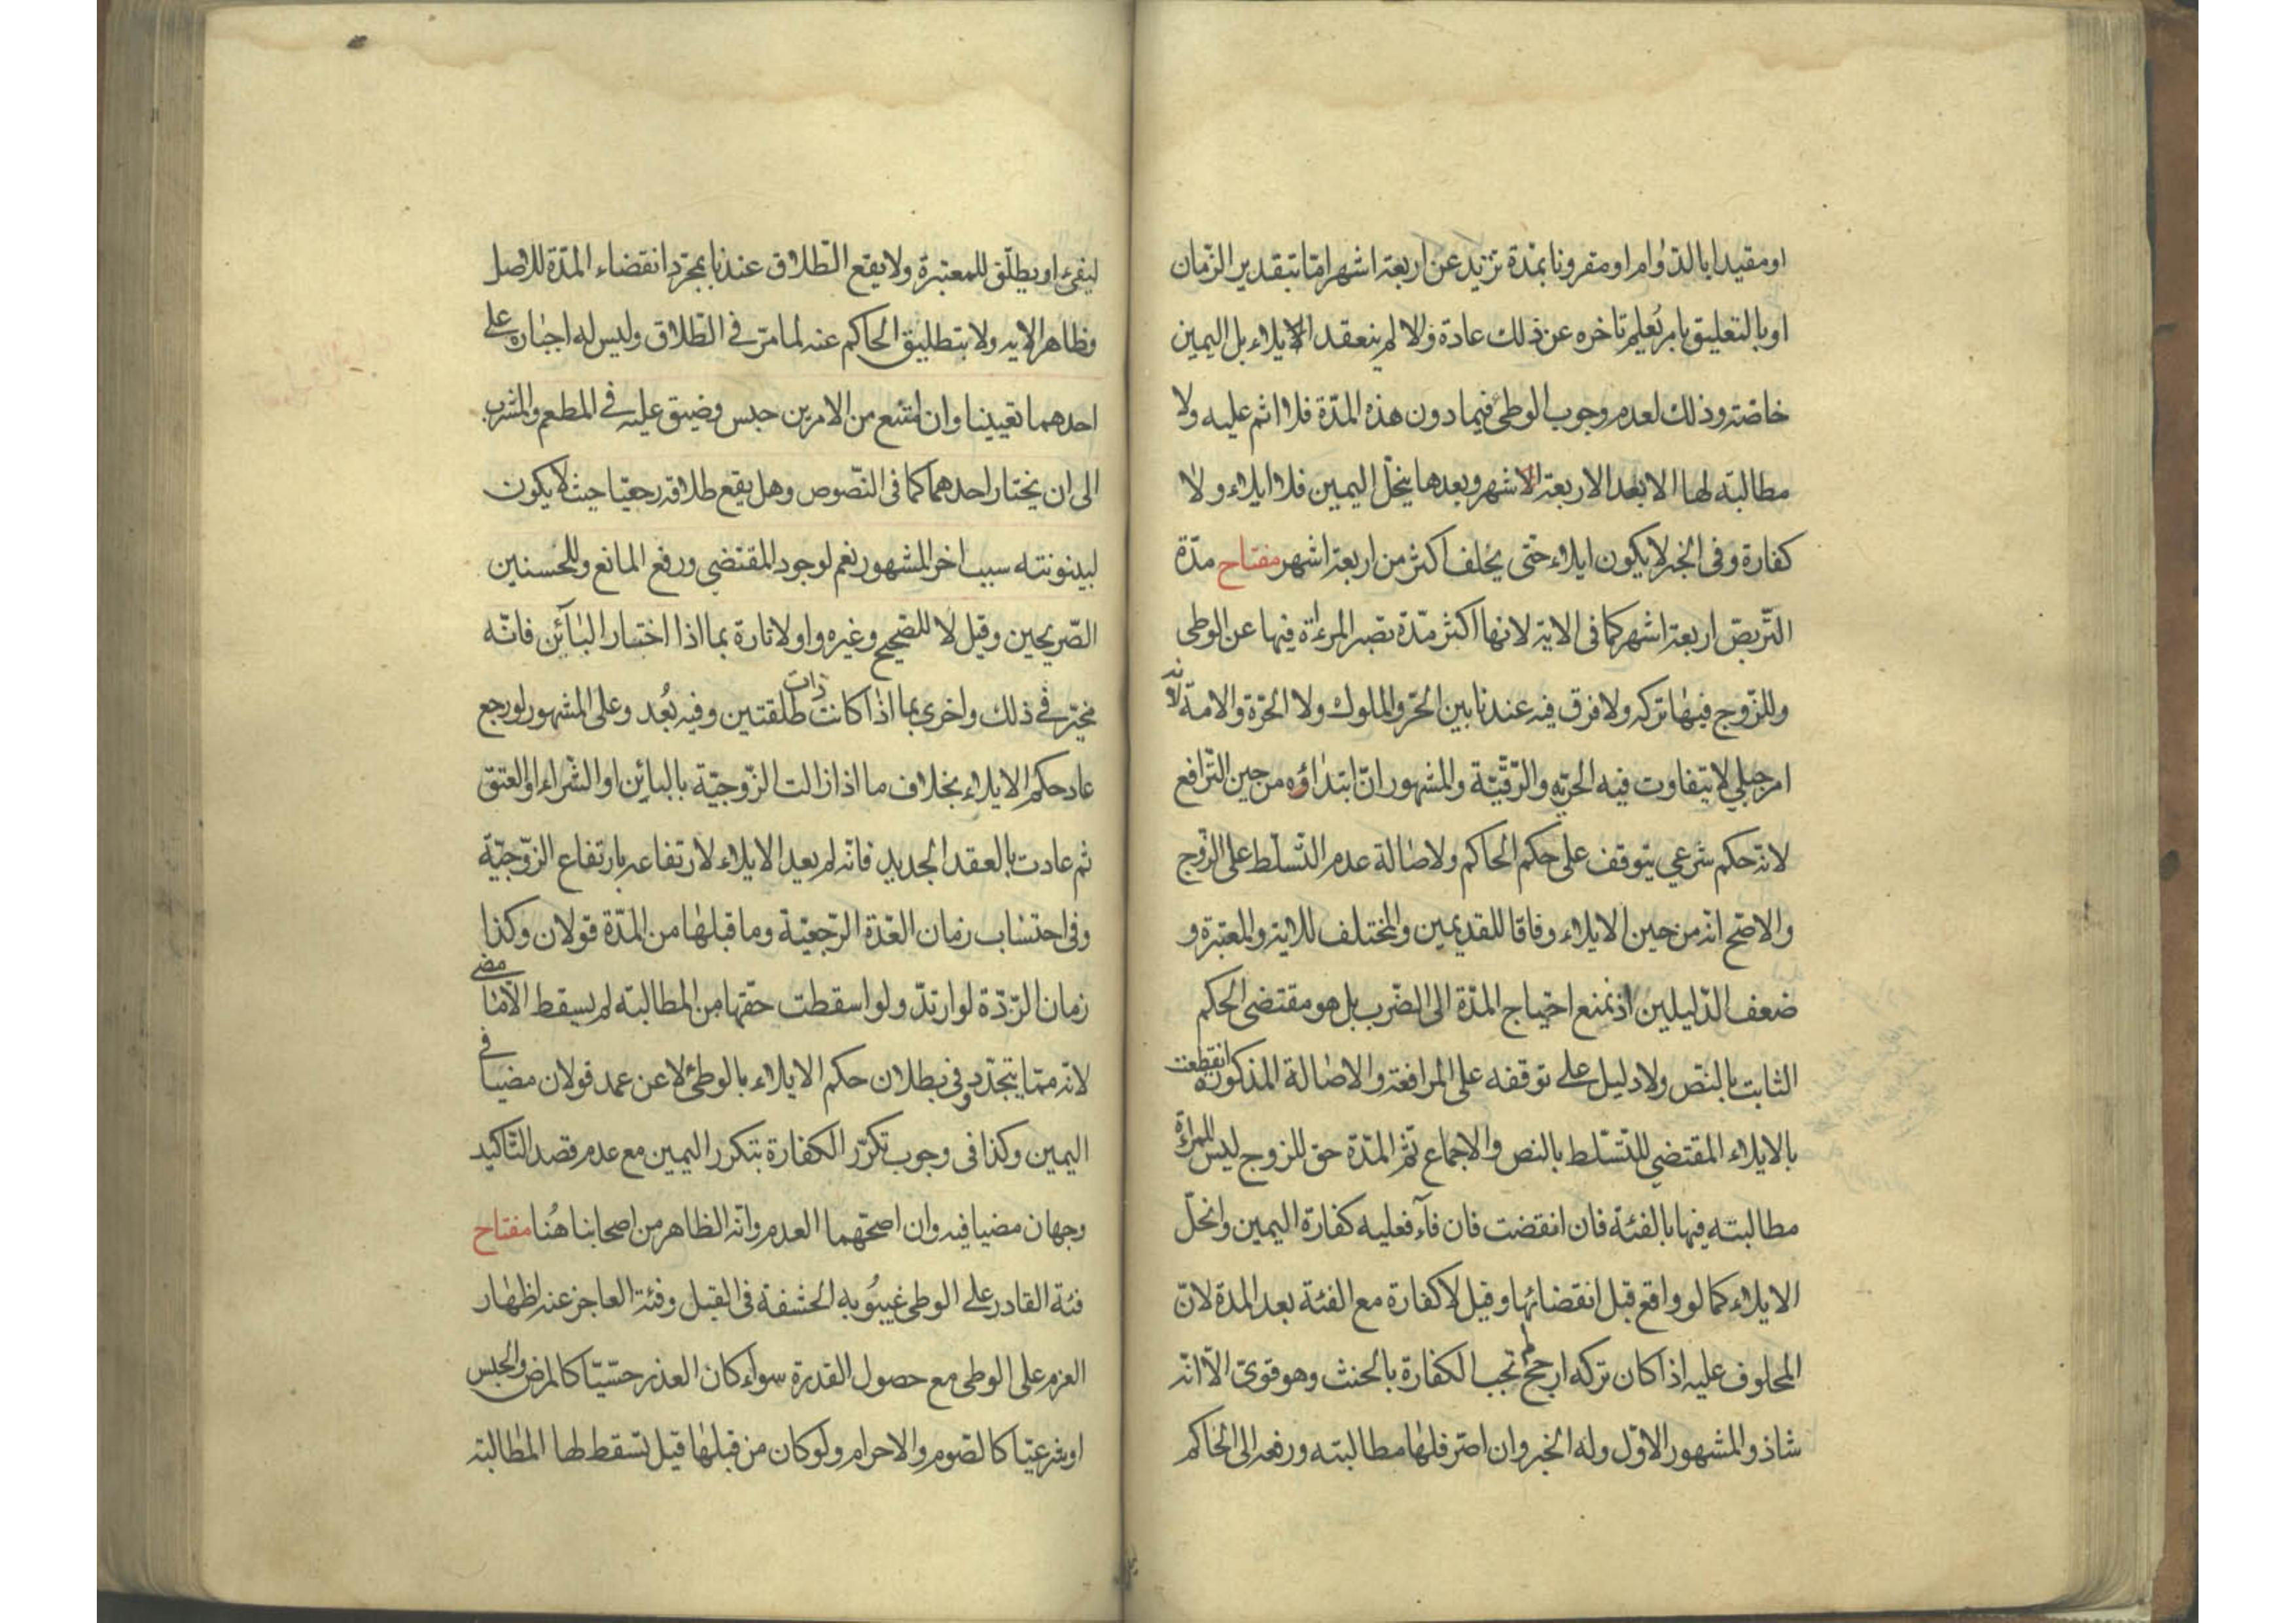 او مقيدا بالدّوام او مقرونا بمدّة تزيد عن اربعة اشهر امّا بتقدير الزّمان
او بالتعليق بامر يُعلم تاخره عن ذلك عادة والا لم ينعقد الايلاء بل اليمين
خاصّة وذلك لعدم وجوب الوطئ فيما دون هذه المدّة فلا اثم عليه ولا
مطالبته لها الا بعد الاربعة الاشهر وبعدها ينحلّ اليمين فلا ايلاء ولا
كفارة وفى الخبر لا يكون ايلاء حتّى يحلف اكثر من اربعة اشهر مفتاح مدّة
التّربّص اربعة اشهر كما فى الاية لانها اكثر مدّة تصبر المرءاة فيها عن الوطى
وللزّوج فيها تركه ولا فرق فيه عندنا بين الحرّ والمملوك ولا الحرّة والامة لانه
امر جبلي لا يتفاوت فيه الحرّيه والرّقيّة والمشهور انّ ابتداؤه من حين التّرافع
لانّه حكم شرعي يتوقف على حكم الحاكم ولاصالة عدم التّسلّط على الزّوج
والاصّح انه من حين الايلاء وفاقا للقديمين والمختلف للاية والمعتبرة و
ضعف الدّليلين اذ نمنع احتياج المدّة الى الضّرب بل هو مقتضى الحكم
الثابت بالنصّ ولا دليل على توقفه على المرافعة والاصالة المذكورة انقطعت
بالايلاء المقتضي للتّسلّط بالنص والاجماع ثمّ المدّة حق للزوج ليس للمراة
مطالبته فيها بالفئة فان انقضت فان فآء فعليه كفارة اليمين وانحلّ
الايلاء كما لو واقع قبل انقضائها وقيل لا كفارة مع الفئة بعد المدة لانّ
المحلوف عليه اذا كان تركه ارجح لم تجب الكفارة بالحنث وهو قوىّ الاّ انّه
شاذ والمشهور الاوّل وله الخبر وان اصر فلها مطالبته ورفعه الى الحاكم
ليفئ او يطلّق للمعتبرة ولا يقع الطّلاق عندنا بمجرّد انقضاء المدّة للاصل
وظاهر الايه ولا بتطليق الحاكم عنه لما مرّ في الطّلاق وليس له اجباره على
احدهما تعيينا وان امتنع من الامرين حبس وضيق عليه في المطعم والمشرب
الى ان يختار احدهما كما فى النّصوص وهل يقع طلاقه رجعيّا حيث لا يكون
لبينونته سبب اخر المشهور نعم لوجود المقتضي ورفع المانع وللحسنين
الصّريحين وقيل لا للصّحيح وغيره واولا تارة بما اذا اختار البآئن فانّه
مخيّر في ذلك واخرى بما اذا كانت ذات طلقتين وفيه بُعد وعلى المشهور لو رجع
عاد حكم الايلاء بخلاف ما اذا زالت الزّوجيّة بالبائن او الشّراء او العتق
ثم عادت بالعقد الجديد فانّه لم يعد الايلاء لارتفاعه بارتفاع الزّوجيّة
وفى احتساب زمان العّدة الرّجعيّة وما قبلها من المدّة قولان وكذا
زمان الرّدّة لو ارتدّ ولو اسقطت حقها من المطالبته لم يسقط الا ما مضى
لانّه ممّا يتجدّد وفي بطلان حكم الايلاء بالوطئ لا عن عمد قولان مضيا في
اليمين وكذا فى وجوب تكرّر الكفارة بتكرر اليمين مع عدم قصد التّاكيد
وجهان مضيا فيه وان اصحّهما العدم وانّه الظاهر من اصحابنا هُنا مفتاح
فئة القادر على الوطى غيبُوبة الحشفة فى القبل وفئة العاجز عنه اظهار
العزم على الوطى مع حصول القدرة سواء كان العذر حسّيّا كالمرض والحبس
او شرعيّا كالصّوم والاحرام ولو كان من قبلها قيل تسقط لها المطالبته